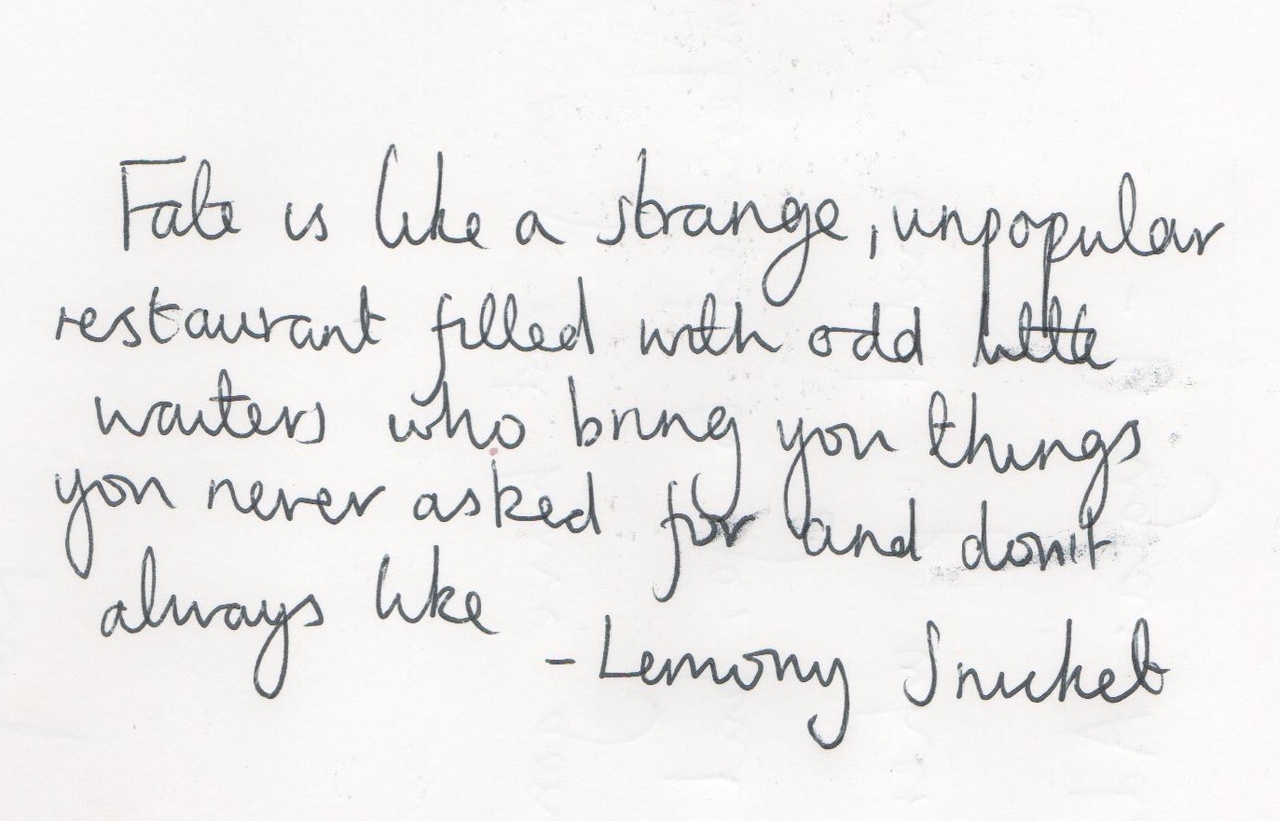 Fate is like a strange, unpopular
restaurant filled with odd little
waiters who bring you things
you never asked for and don't
always like
- Lemony Snicket